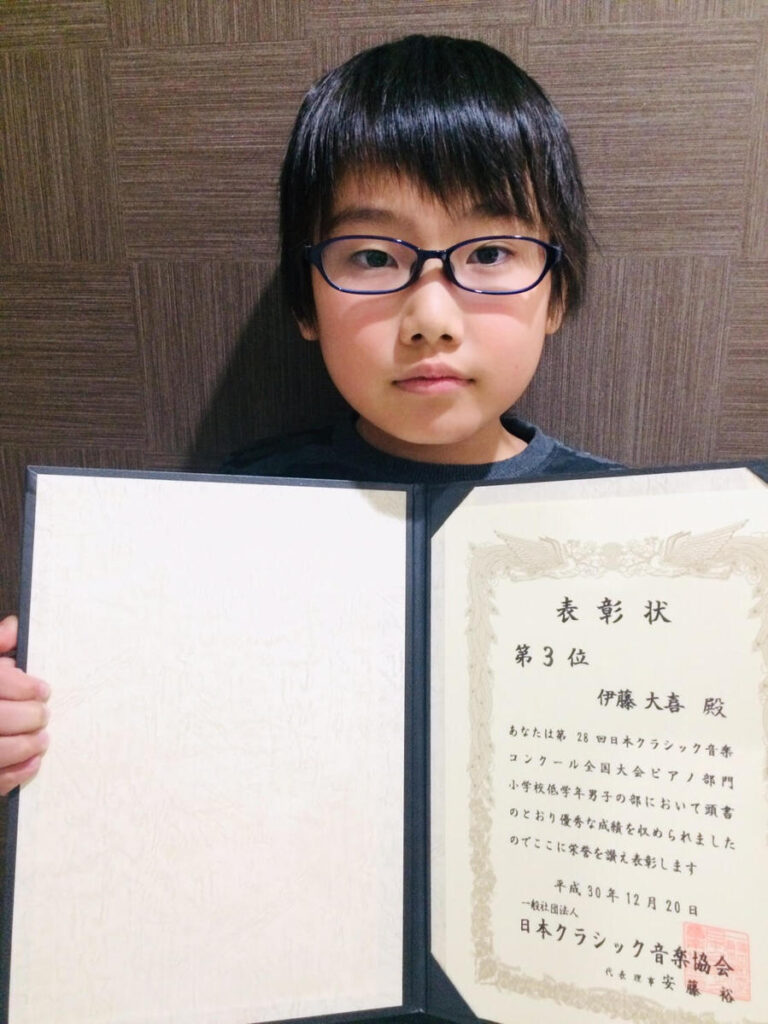 表彰状
第3位
伊藤 大喜 殿
あなたは第 28 回日本クラシック音楽
コンクール全国大会ピアノ部門
小学校低学年男子の部において頭書
のとおり優秀な成績を収められました
のでここに栄誉を讃え表彰します
平成30年12月20日
一般社団法人
日本クラシック音楽協会
代表理事 安藤 裕